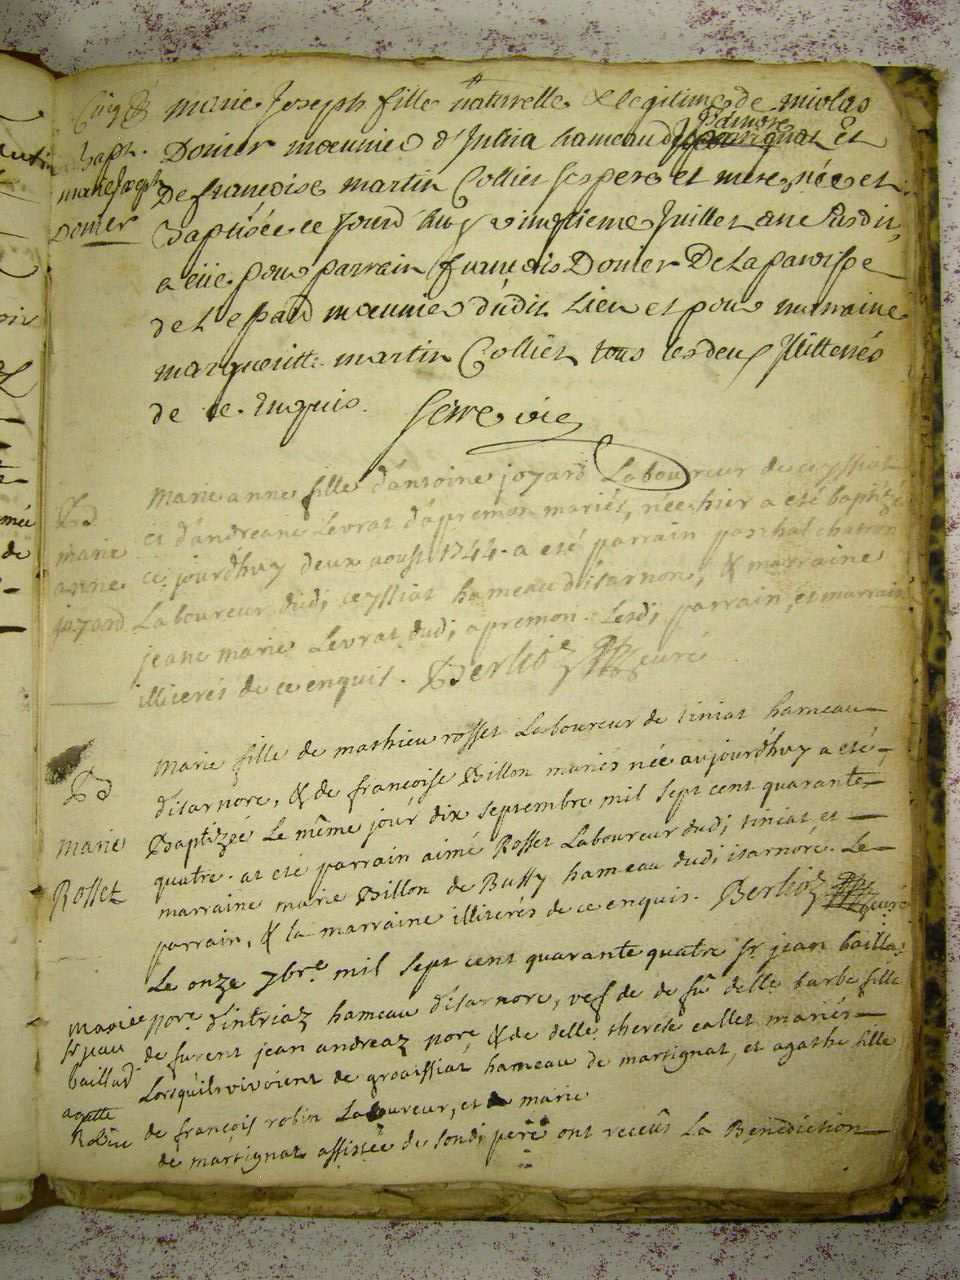 marie Joseph fille naturelle & legitime de nicolas
bapt.
Donier meunier d'Intria hameau et
marie Joseph
De françoise martin Collier ses pere et mere née et
Donier
Baptisée ce Jourd'huy vingtieme Juillet an Susdit,
a eue pour parrain françois Donier De La paroisse
de meunier dudit Lieu et pour marraine
margueritte martin Collier tous les deux Illiterés
de ce Enquis.
marie anne fille d'antoine jozard Laboureur de ceyssiat
Bd
et d'andreane Levrat d'apremon mariés, née hier a eté baptizée
marie
ce jourd'huy deux aoust 1744. a eté parrain paschal chatron
anne
Laboureur dudi ceyssiat hameau d'isarnon, & marraine
jozard
jeane marie Levrat dudi apremon. Lesdi parrain, et marraine
illiterés de ce enquis. Berlioz curé
marie fille de mathieu rosset Laboureur de tiniat hameau
Bd
d'isarnore, & de françoise Billon mariés née aujourd'huy a eté
marie
Baptizée Le même jour dix septembre mil sept cent quarante
Rosset
quatre. at eté parrain aimé Rosset Laboureur dudi tiniat, et
marraine marie Billon de Bussy hameau dudi isarnore. Le
parrain, & la marraine illiterés de ce enquis. Berlioz curé
Le onze 7bre mil sept cent quarante quatre sr jean baillad
mariée
d'intriaz hameau d'isarnore, vef de de fû delle barbe fille
sr jean
de furent jean andreaz & de delle therese callet mariés
baillad
Lorsquils vivoient de groaissiat hameau de martignat, et agathe fille
agatte
Robin
de françois robin Laboureur, et marie
de martignat assistée de sondi pere ont receûs La Benediction